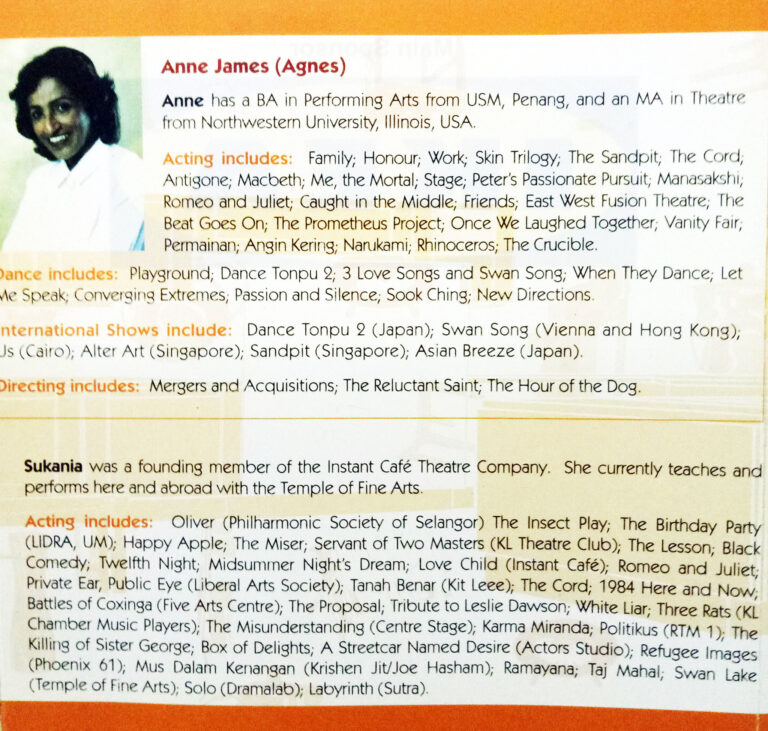 Anne James (Agnes)
Anne has a BA in Performing Arts from USM, Penang, and an MA in Theatre
from Northwestern University, Illinois, USA.
Acting includes: Family; Honour; Work; Skin Trilogy; The Sandpit; The Cord;
Antigone; Macbeth; Me, the Mortal; Stage; Peter's Passionate Pursuit; Manasakshi;
Romeo and Juliet; Caught in the Middle; Friends; East West Fusion Theatre; The
Beat Goes On; The Prometheus Project; Once We Laughed Together; Vanity Fair;
Permainan; Angin Kering; Narukami; Rhinoceros; The Crucible.
Dance includes: Playground; Dance Tonpu 2; 3 Love Songs and Swan Song; When They Dance; Let
Me Speak; Converging Extremes; Passion and Silence; Sook Ching; New Directions.
International Shows include: Dance Tonpu 2 (Japan); Swan Song (Vienna and Hong Kong);
Us (Cairo); Alter Art (Singapore); Sandpit (Singapore); Asian Breeze (Japan).
Directing includes: Mergers and Acquisitions; The Reluctant Saint; The Hour of the Dog.
Sukania was a founding member of the Instant Café Theatre Company. She currently teaches and
performs here and abroad with the Temple of Fine Arts.
Acting includes: Oliver (Philharmonic Society of Selangor) The Insect Play; The Birthday Party
(LIDRA, UM); Happy Apple; The Miser; Servant of Two Masters (KL Theatre Club); The Lesson; Black
Comedy; Twelfth Night; Midsummer Night's Dream; Love Child (Instant Café); Romeo and Juliet;
Private Ear, Public Eye (Liberal Arts Society); Tanah Benar (Kit Leee); The Cord; 1984 Here and Now;
Battles of Coxinga (Five Arts Centre); The Proposal; Tribute to Leslie Dawson; White Liar; Three Rats (KL
Chamber Music Players); The Misunderstanding (Centre Stage); Karma Miranda; Politikus (RTM 1); The
Killing of Sister George; Box of Delights; A Streetcar Named Desire (Actors Studio); Refugee Images
(Phoenix 61); Mus Dalam Kenangan (Krishen Jit/Joe Hasham); Ramayana; Taj Mahal; Swan Lake
(Temple of Fine Arts); Solo (Dramalab); Labyrinth (Sutra).